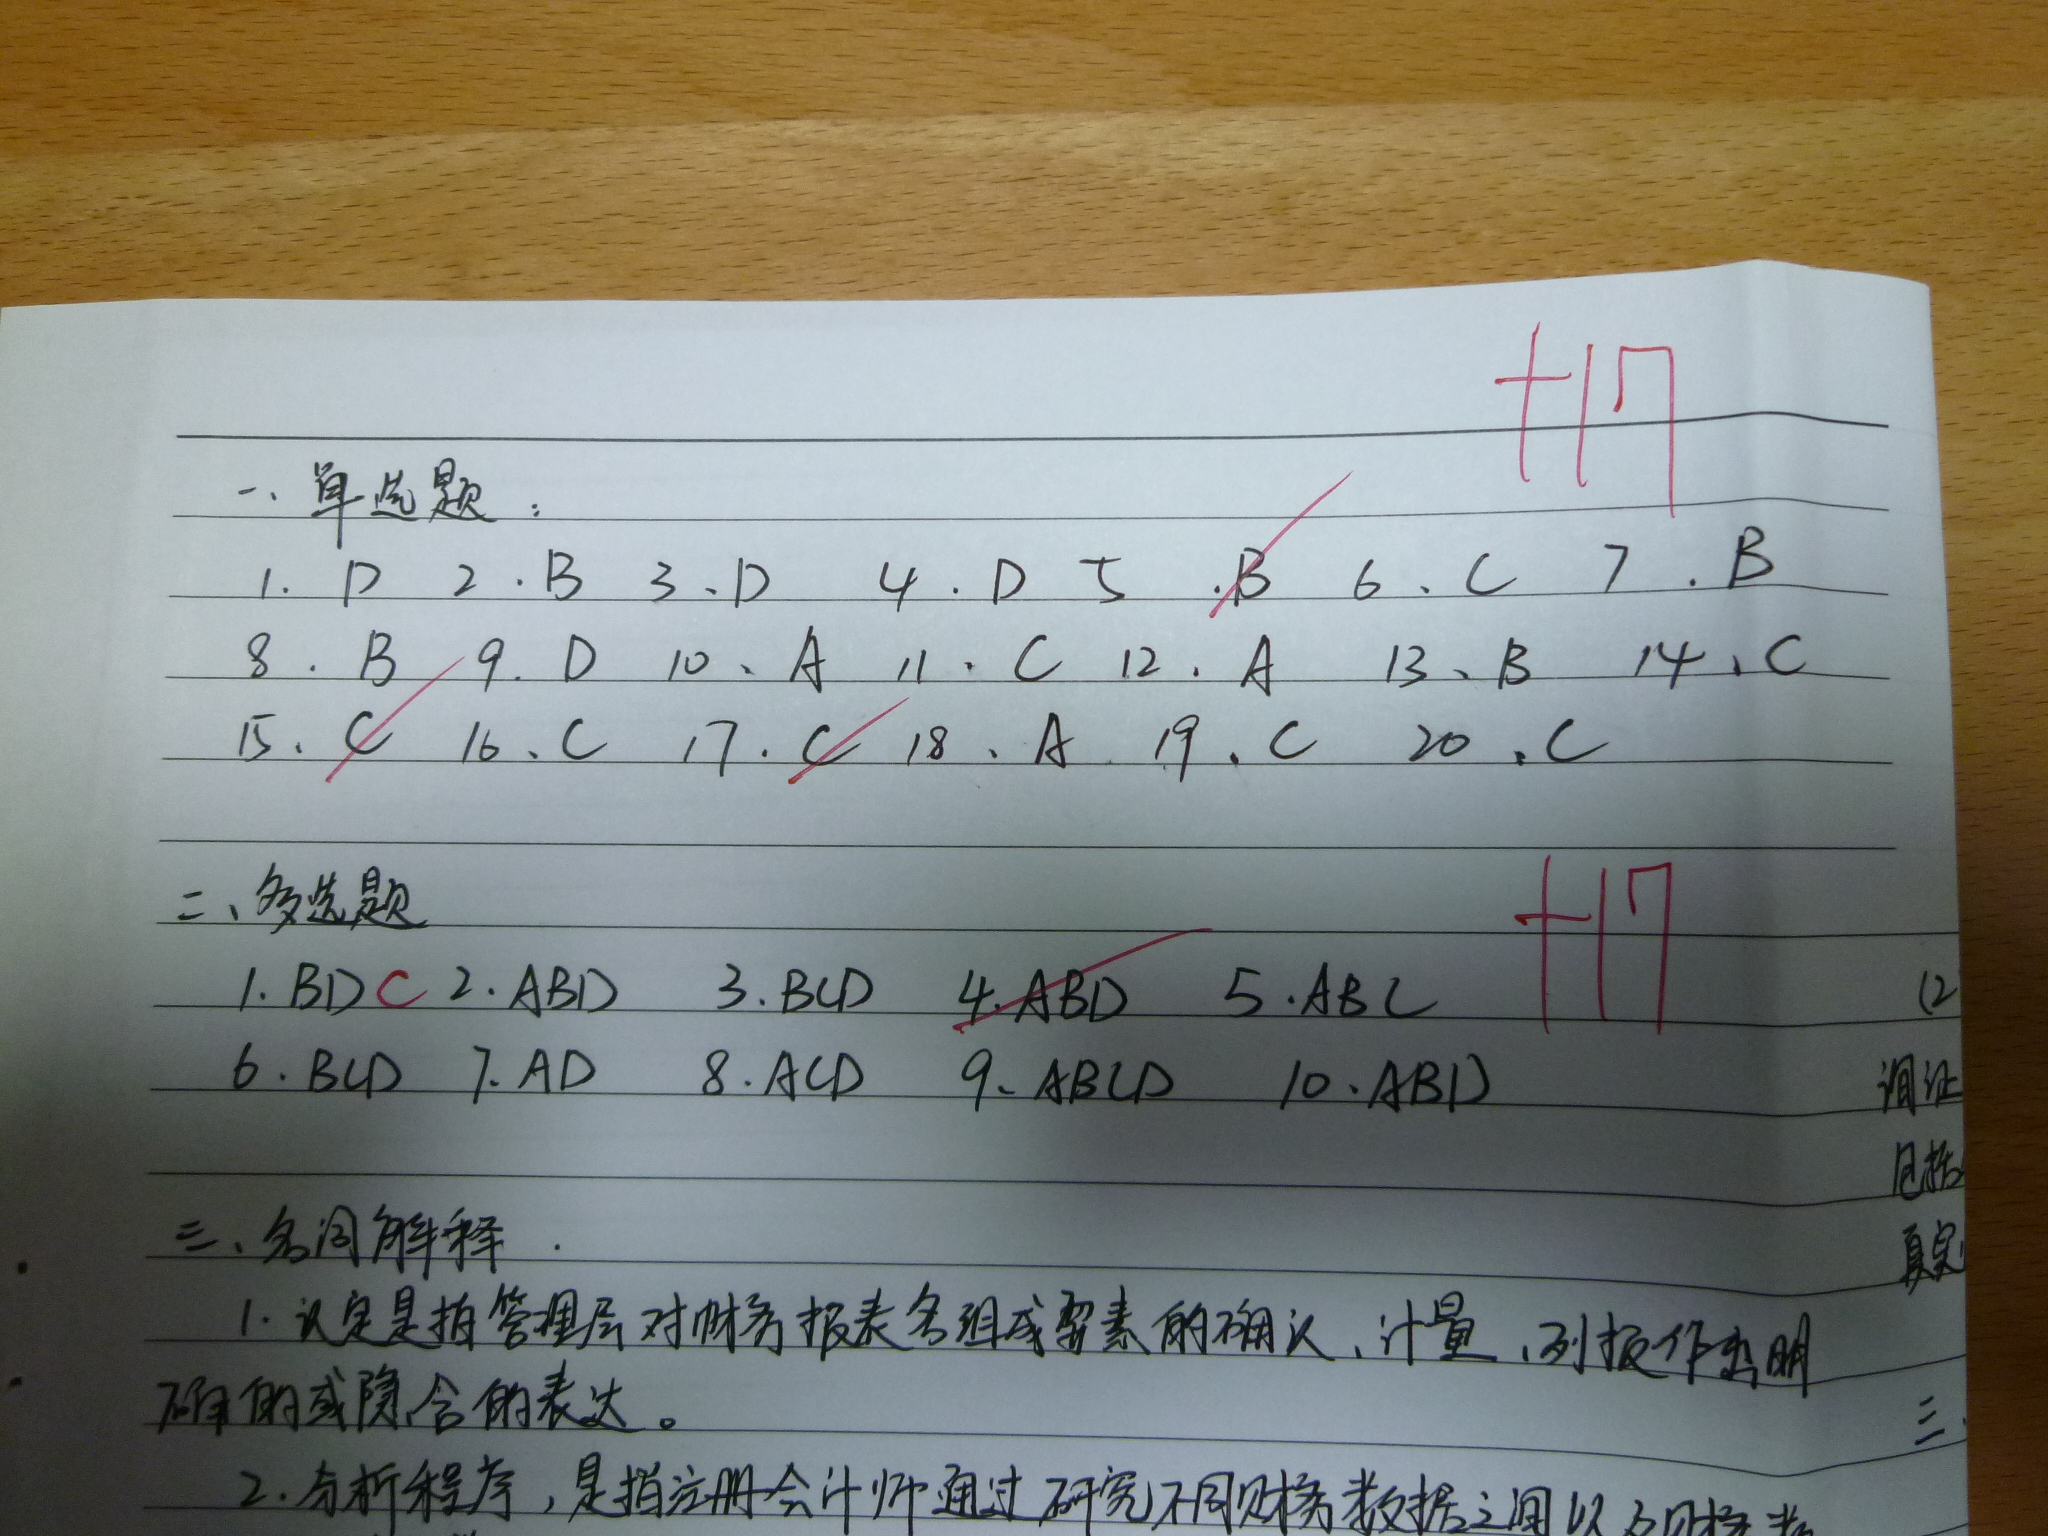 +17
一、单选题：
1. D 2. B 3. D 4. D 5. B 6. C 7. B
8. B 9. D 10、A 11. C 12. A 13、B 14、C
15、C 16、C 17. C 18、A 19. C 20. C
二、多选题
+17
1. BDC 2. ABD 3. BCD 4. ABD 5. ABC
6. BCD 7. AD 8. ACD 9、ABCD 10. ABD
三、名词解释
1. 认定是指管理层对财务报表各组成要素的确认、计量、列报作出明
确的或隐含的表达。
2. 分析程序，是指注册会计师通过研究不同财务数据之间以及财务数
(2
函证
包括
真实
三、